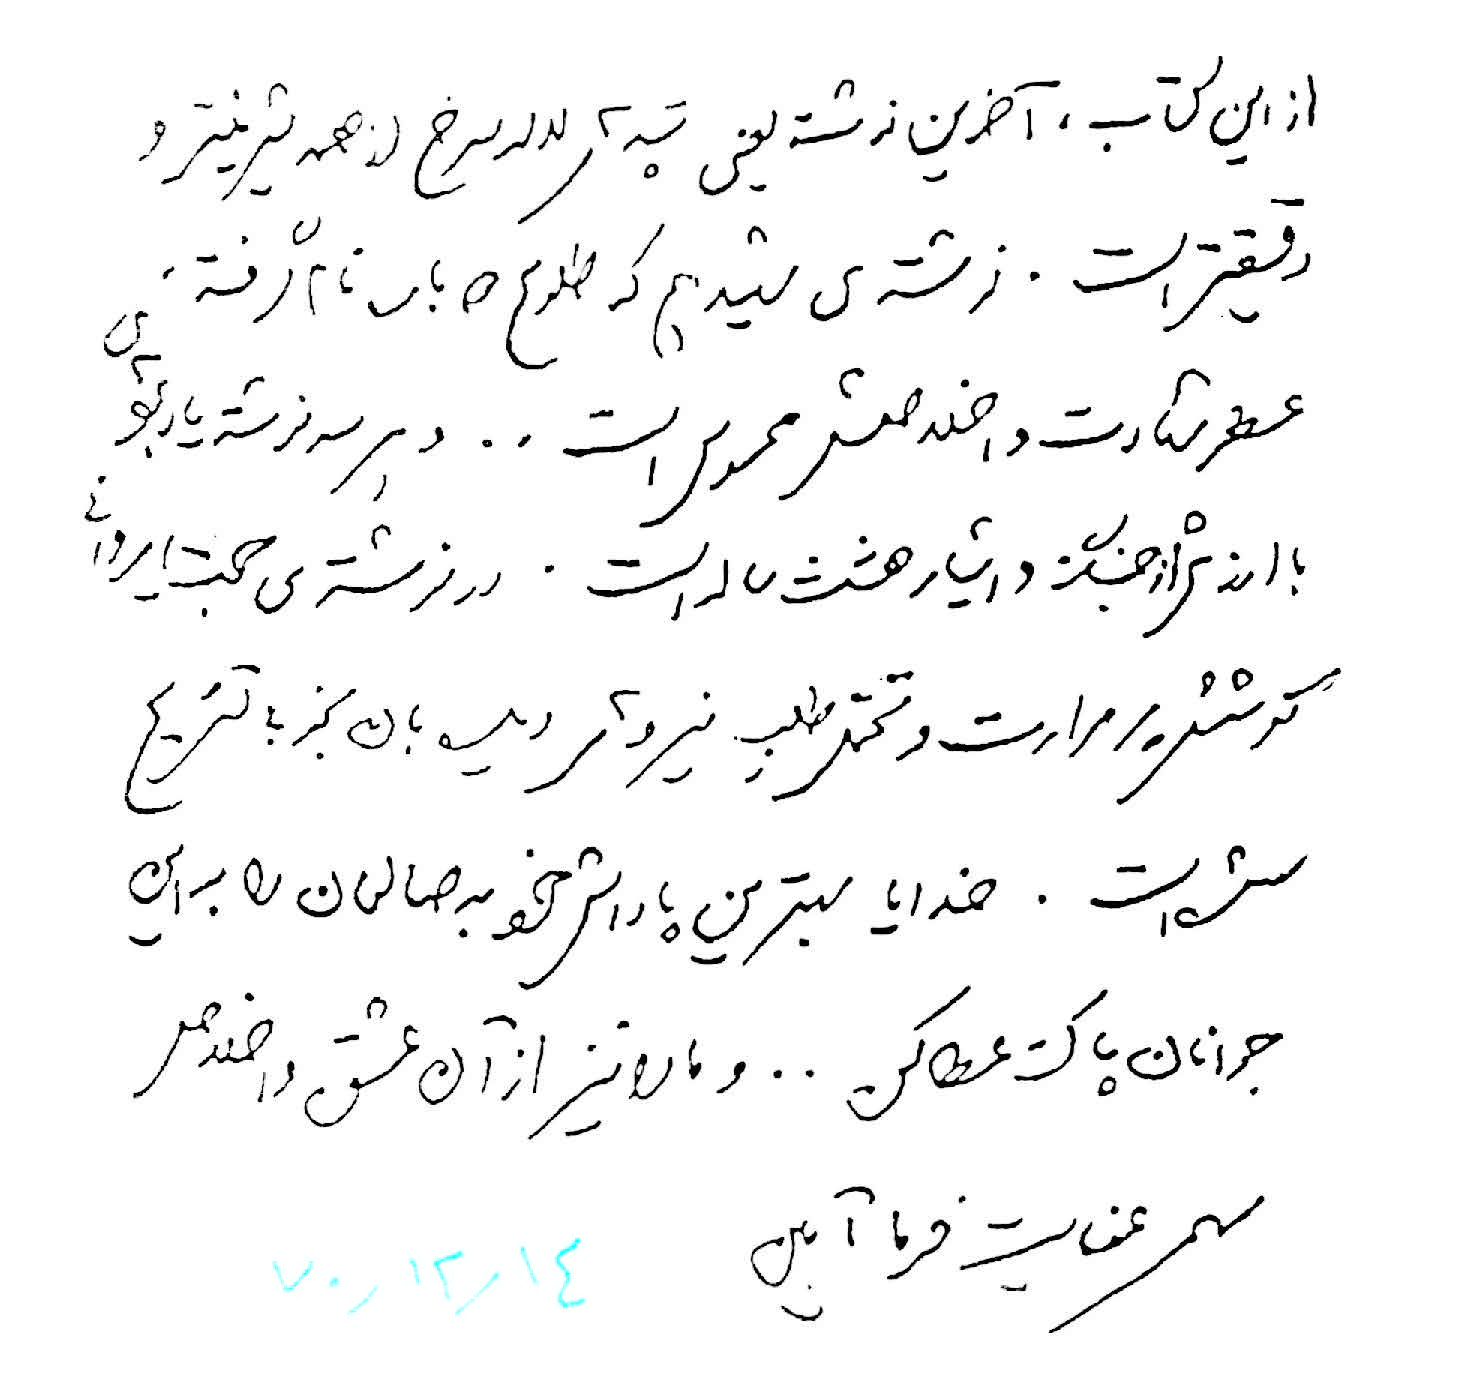 از این کتاب، آخرین نوشته یعنی تپه‌ی لاله سرخ از همه شیرینتر و
دقیقتر است. نوشته‌ی شهیدیم که طلوع ه باب نام گرفته،
عطر شهادت و اخلاصش محسوس است .. و هر سه نوشته یادبودی
با ارزش از جنگ و ایثار هشت ساله است. در نوشته‌ی
کوشش پر مرارت و تحمل طلب نیروی دیده بان نیز با تشریح
شده است. خدایا بهترین پاداش خود به صالحان را به این
جوانان پاکت عطا کن .. و ما را نیز از آن عشق و اخلاص
سهمی عنایت فرما آمین
۷۰/۱۲/۱۴